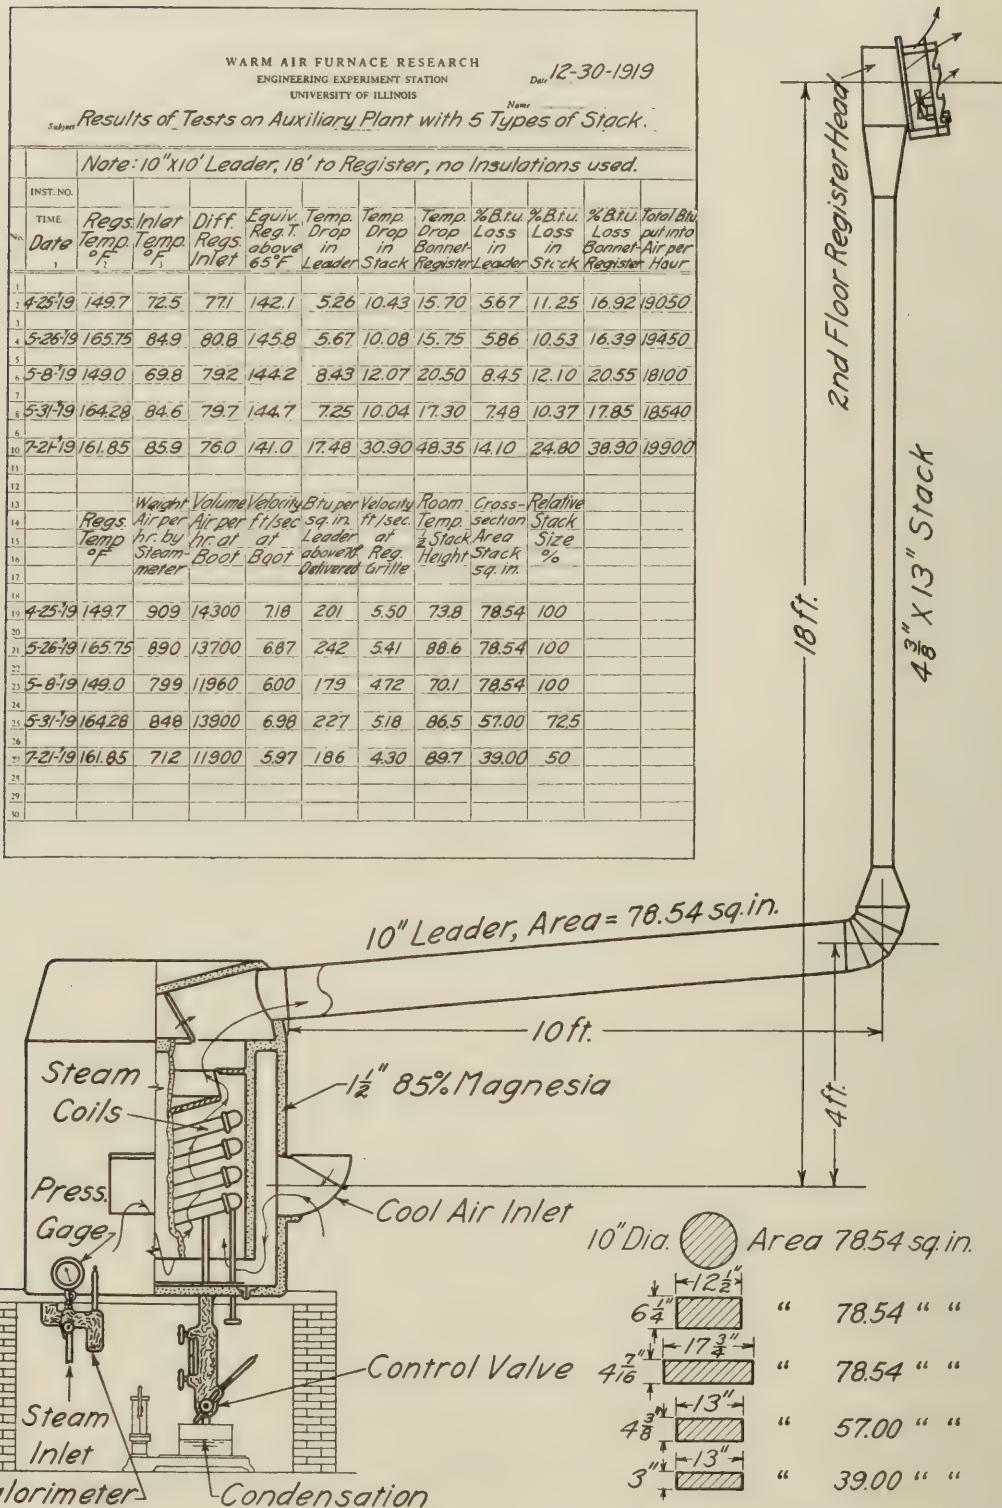 WARM AIR FURNACE RESEARCH
ENGINEERING EXPERIMENT STATION
UNIVERSITY OF ILLINOIS
Date 12-30-1919
Name
Subject Results of Tests on Auxiliary Plant with 5 Types of Stack.
Note: 10"x10' Leader, 18' to Register, no Insulations used.
INST. NO.
No. TIME Date 1 | Regs. Temp. °F 2 | Inlet Temp. °F 3 | Diff. Regs. Inlet | Equiv. Reg. T. above 65°F | Temp. Drop in Leader | Temp. Drop in Stack | Temp. Drop Bonnet-Register | % B.t.u. Loss in Leader | % B.t.u. Loss in Stack | % B.t.u. Loss Bonnet-Register | Total Btu. put into Air per Hour
1
2 4-25-'19 149.7 72.5 77.1 142.1 5.26 10.43 15.70 5.67 11.25 16.92 19050
3
4 5-26-'19 165.75 84.9 80.8 145.8 5.67 10.08 15.75 5.86 10.53 16.39 19450
5
6 5-8-'19 149.0 69.8 79.2 144.2 8.43 12.07 20.50 8.45 12.10 20.55 18100
7
8 5-31-'19 164.28 84.6 79.7 144.7 7.25 10.04 17.30 7.48 10.37 17.85 18540
6
10 7-21-'19 161.85 85.9 76.0 141.0 17.48 30.90 48.35 14.10 24.80 38.90 19900
11
12
13
14
15
16
17
Regs. Temp °F | Weight Air per hr. by Steam-meter | Volume Air per hr. at Boot | Velocity ft/sec at Boot | Btu per sq. in. Leader above Delivered | Velocity ft/sec. at Reg. Grille | Room Temp. ½ Stack Height | Cross-section Area Stack sq. in. | Relative Stack Size %
18
19 4-25-'19 149.7 909 14300 7.18 201 5.50 73.8 78.54 100
20
21 5-26-'19 165.75 890 13700 6.87 242 5.41 88.6 78.54 100
22
23 5-8-'19 149.0 799 11960 6.00 179 4.72 70.1 78.54 100
24
25 5-31-'19 164.28 848 13900 6.98 227 5.18 86.5 57.00 72.5
26
27 7-21-'19 161.85 712 11900 5.97 186 4.30 89.7 39.00 50
29
30
2nd Floor Register Head
18 ft.
4 3/8" X 13" Stack
10" Leader, Area = 78.54 sq. in.
10 ft.
4 ft.
Steam
Coils
1½" 85% Magnesia
Press.
Gage
Cool Air Inlet
Control Valve
Steam
Inlet
Condensation
10" Dia. Area 78.54 sq. in.
12½"
6¼" " 78.54 " "
17¾"
4 7/16" " 78.54 " "
13"
4 3/8" " 57.00 " "
13"
3" " 39.00 " "